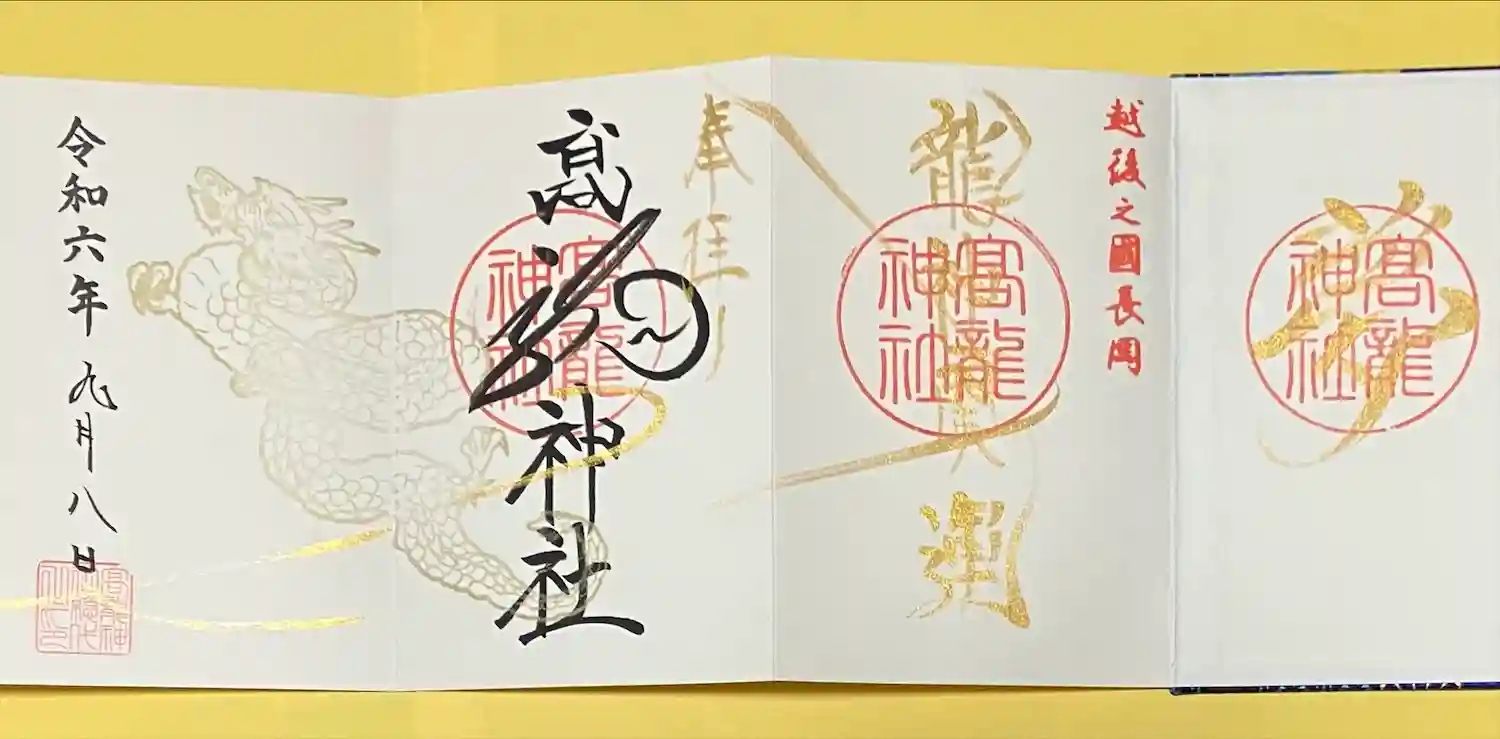 髙龍
神社
越後之國長岡
髙龍
神社
奉拝
髙龍神社
髙龍
神社
令和六年 九月八日